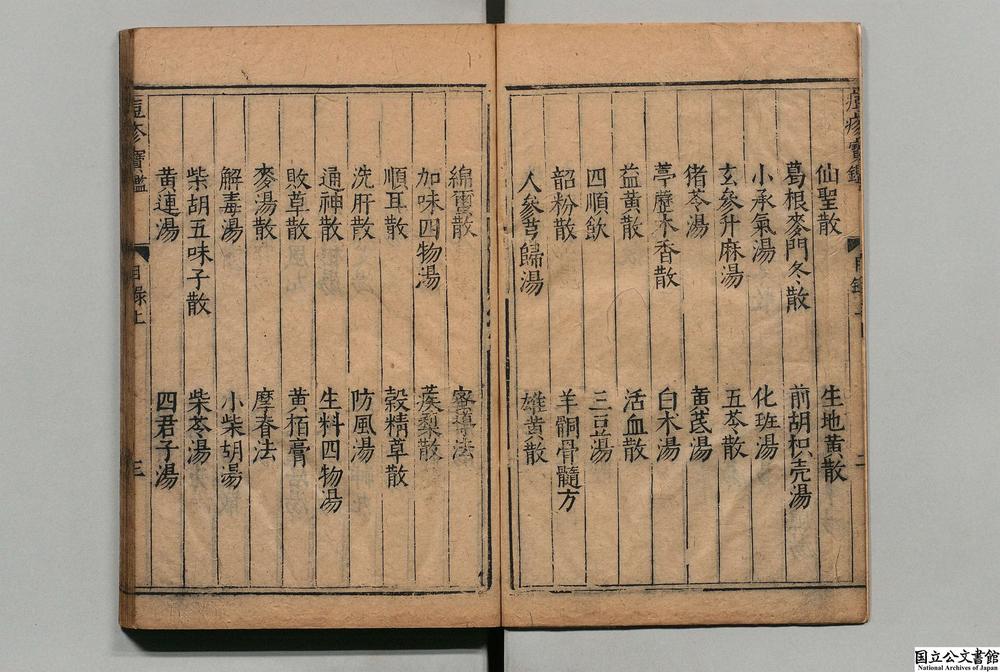 痘疹寶鑑
目錄上
二
仙聖散
生地黃散
葛根麥門冬散
前胡枳壳湯
小承氣湯
化班湯
玄參升麻湯
五苓散
猪苓湯
黃芪湯
葶藶木香散
白朮湯
益黃散
活血散
四順飲
三豆湯
韶粉散
羊䯚骨髓方
人參芎歸湯
雄黃散
綿蠒散
蜜導法
加味四物湯
蒺梨散
順耳散
榖精草散
洗肝散
防風湯
通神散
生料四物湯
敗草散
黃栢膏
麥湯散
摩脊法
解毒湯
小柴胡湯
柴胡五味子散
柴苓湯
黃連湯
四君子湯
痘疹寶鑑
目錄上
三
国立公文書館
National Archives of Japan